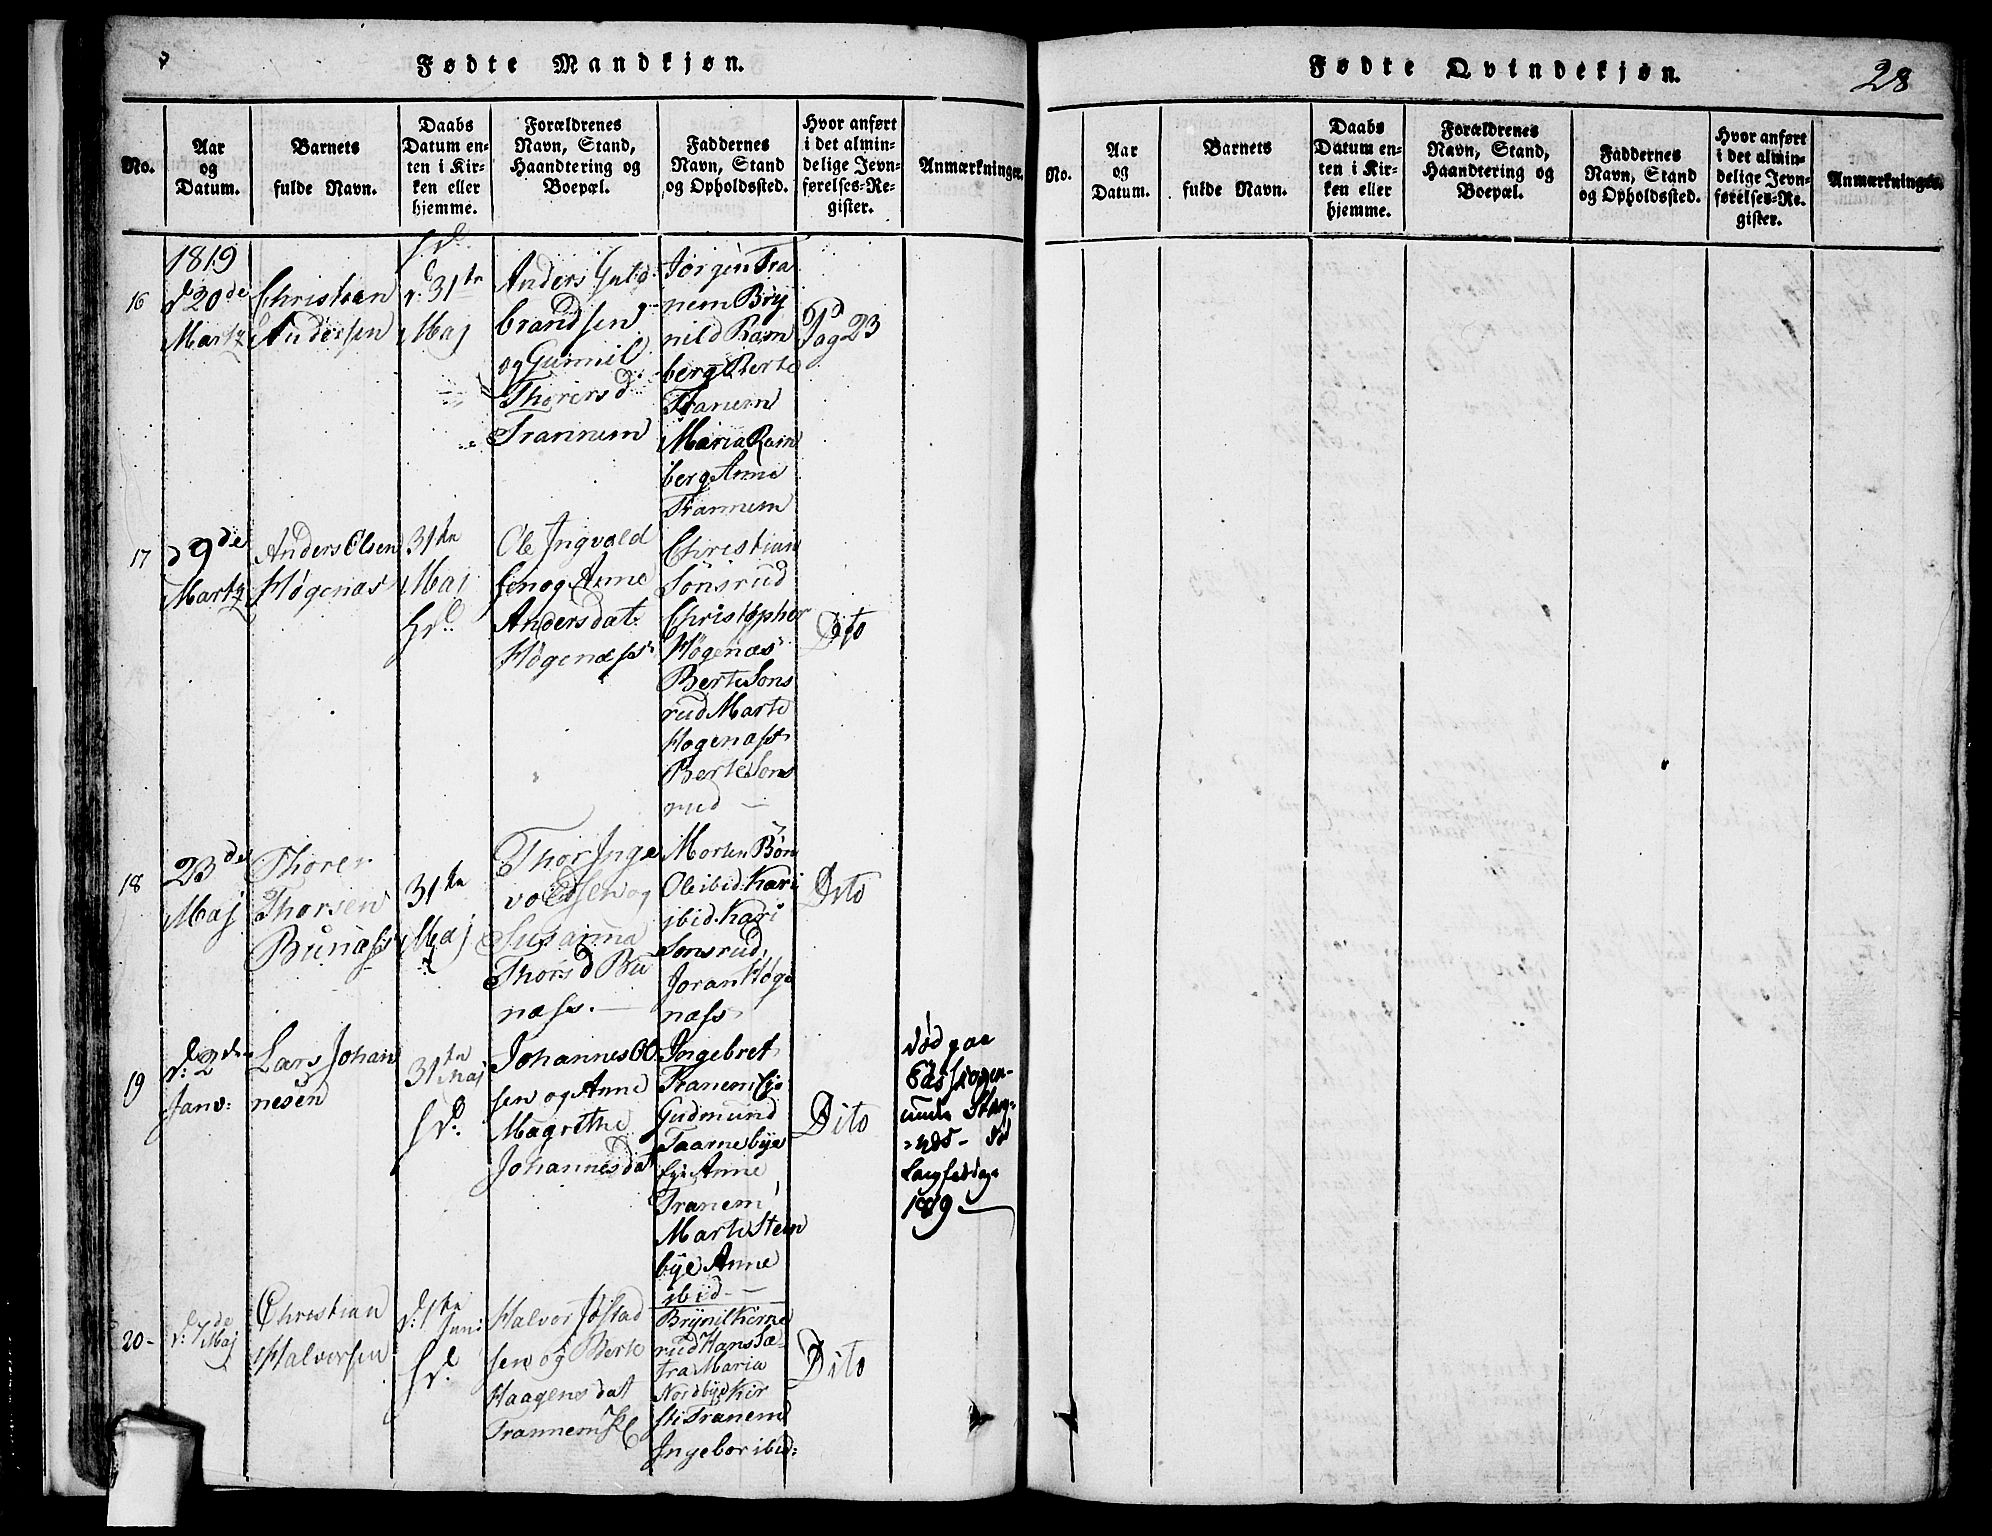 Fødte Mandkjøn.
No.
Aar
og
Datum.
Barnets
fulde Navn.
Daabs
Datum en-
ten i Kir-
ken eller
hjemme.
Forældrenes
Navn, Stand,
Haandtering og
Boepæl.
Faddernes
Navn, Stand
og Opholdssted.
Hvor anført
i det almin-
delige Jevn-
førelses-Re-
gister.
Anmærkninger.
16
1819
d. 20de
Marty
Christian
Andersen
d. 31te
Maj
Anders Gulb
brandsen
og Gunnil
Thorersd
Trannem
Jørgen Tra
nem Bry
nild Ram
berg Berte
Tranem
Maria Ram
berg Anne
Trannem
Pag 23
17
d 9de
Marty
Anders Olsen
Høgenæs
31te
Maj
Ole Ingvald
sen og Anne
Andersdat
Høgenæss
Christian
Sønsrud
Christopher
Høgenæs
Berte Sons
rud Marte
Høgenæss
Berte Sons
rud —
Dito
18
23de
Maj
Thorer
Thorsen
Bunæss
31te
Maj
Thor Inge
voldsen og
Susanna
Thorsd Bu
næss. —
Morten Bøn
Ole ibid. Kari
ibid. Kari
Sonsrud
Joran Høge
næss
Dito
19
d. 2den
Janv:
Lars Johan
nesen
31te Maj
Johannes Ol
sen og Anne
Magrethe
Johannesdat
Ingebret
Tranem
Gudmund
Taarnebye
Anne
Tranem
Marte Steen
bye Anne
ibid —
Dito
Død paa
1819
20-
d. 7de
Maj
Christian
Halvorsen
d. 1te
Juni
Halvor Jostad
sen og Berte
Haagensdat
Trannem
Brynil Kirke
rud Hans Sæ-
tra Maria
Nordbye Kir
sti Tranem
Ingebor ibid:
Dito
Fødte Qvindekjøn.
28
No.
Aar
og
Datum.
Barnets
fulde Navn.
Daabs
Datum en-
ten i Kir-
ken eller
hjemme.
Forældrenes
Navn, Stand,
Haandtering og
Boepæl.
Faddernes
Navn, Stand
og Opholdssted.
Hvor anført
i det almin-
delige Jevn-
førelses-Re-
gister.
Anmærkninger.